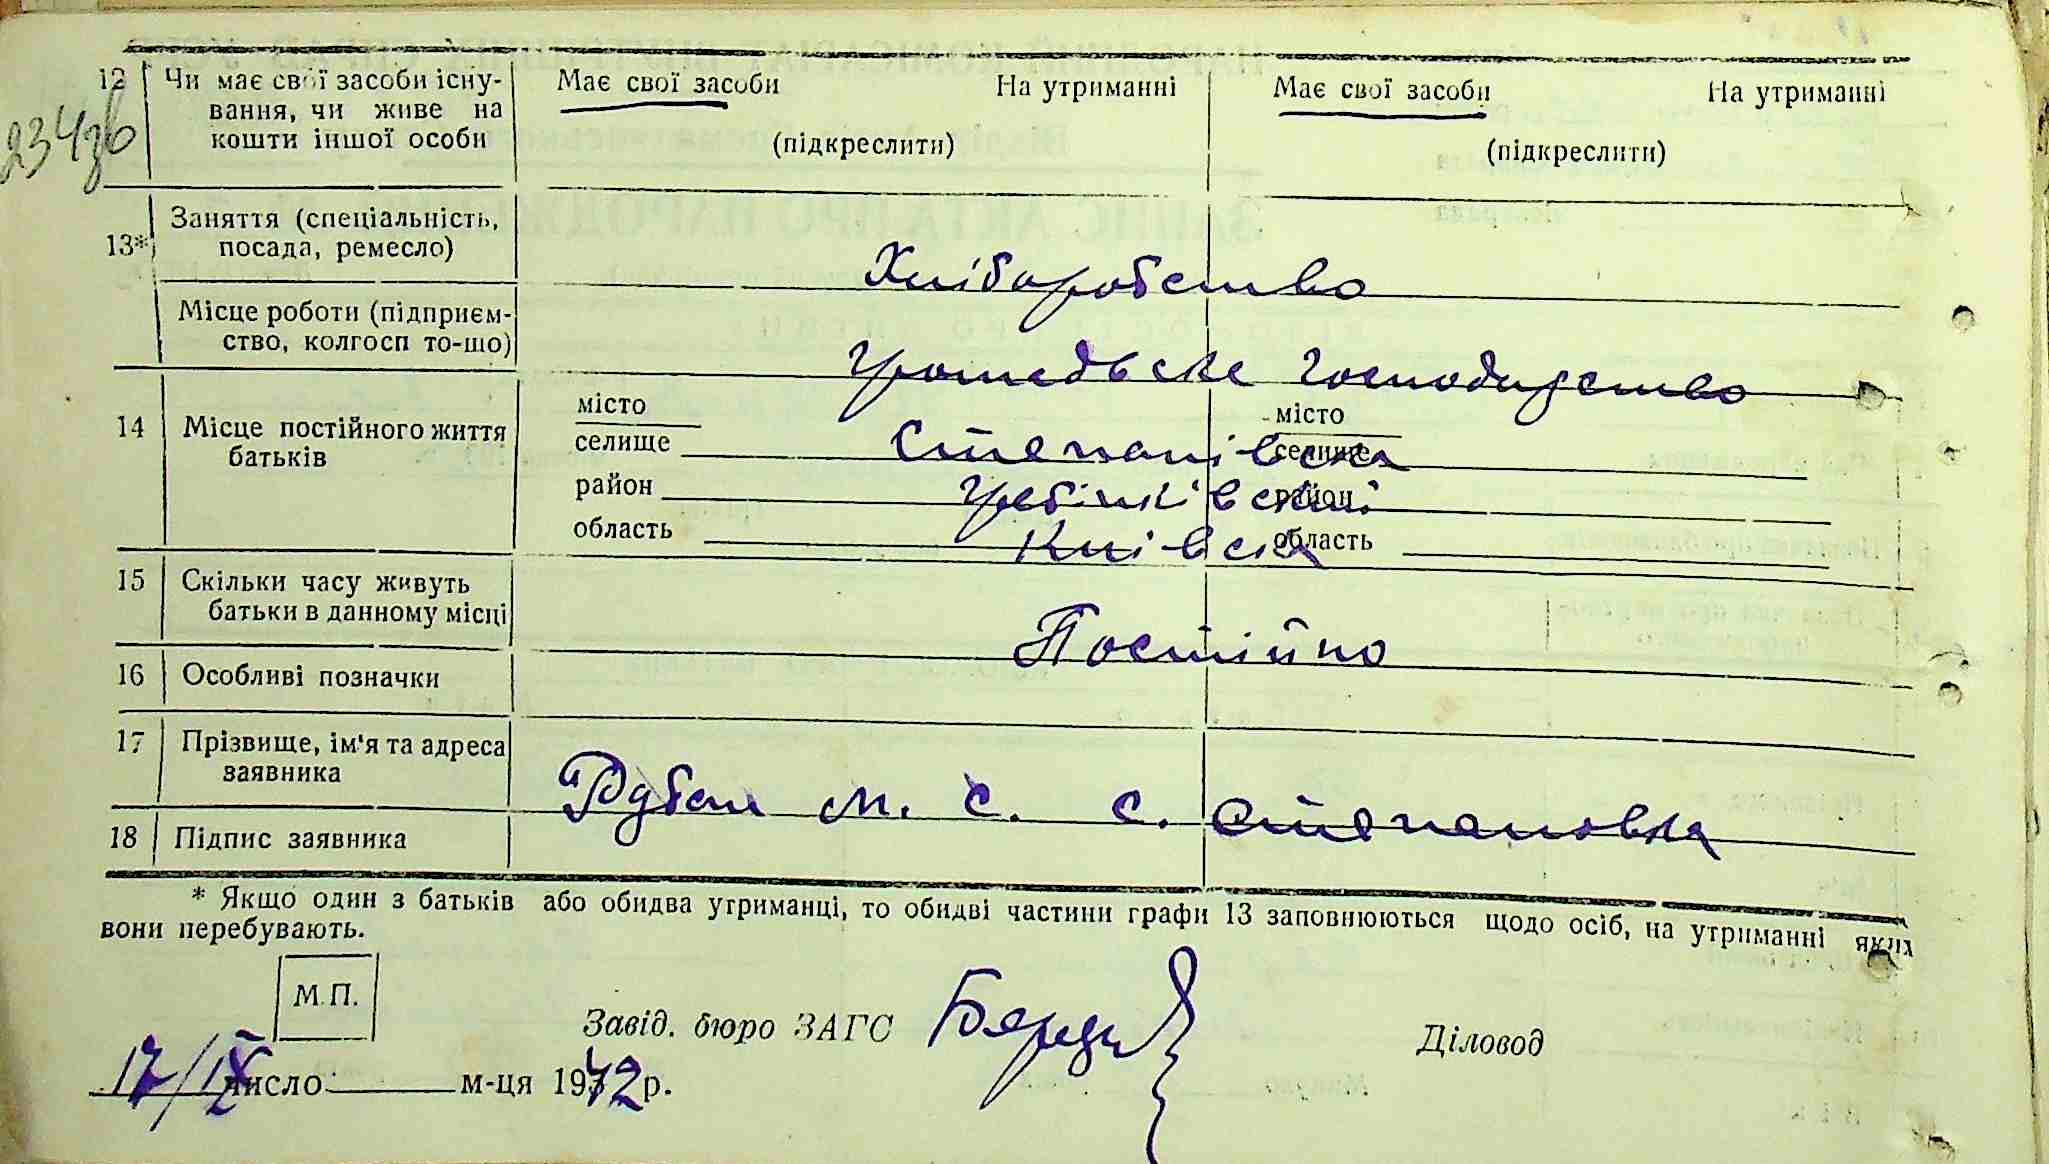 234зв
12 Чи має свої засоби існу- Має свої засоби На утриманні Має свої засоби На утриманні
вання, чи живе на
кошти іншої особи (підкреслити) (підкреслити)
13* Заняття (спеціальність,
посада, ремесло) Хліборобство
Місце роботи (підприєм-
ство, колгосп то-що) Громадьске Господарство
14 Місце постійного життя батьків місто місто
селище Степанівка селище
район Гребінківский район
область Київска область
15 Скільки часу живуть
батьки в данному місці Постійно
16 Особливі позначки
17 Прізвище, ім'я та адреса
заявника Рубан М. С. с. Степановка
18 Підпис заявника
* Якщо один з батьків або обидва утриманці, то обидві частини графи 13 заповнюються щодо осіб, на утриманні яких
вони перебувають.
М.П.
Завід. бюро ЗАГС Діловод
17/IX число м-ця 1942 р.